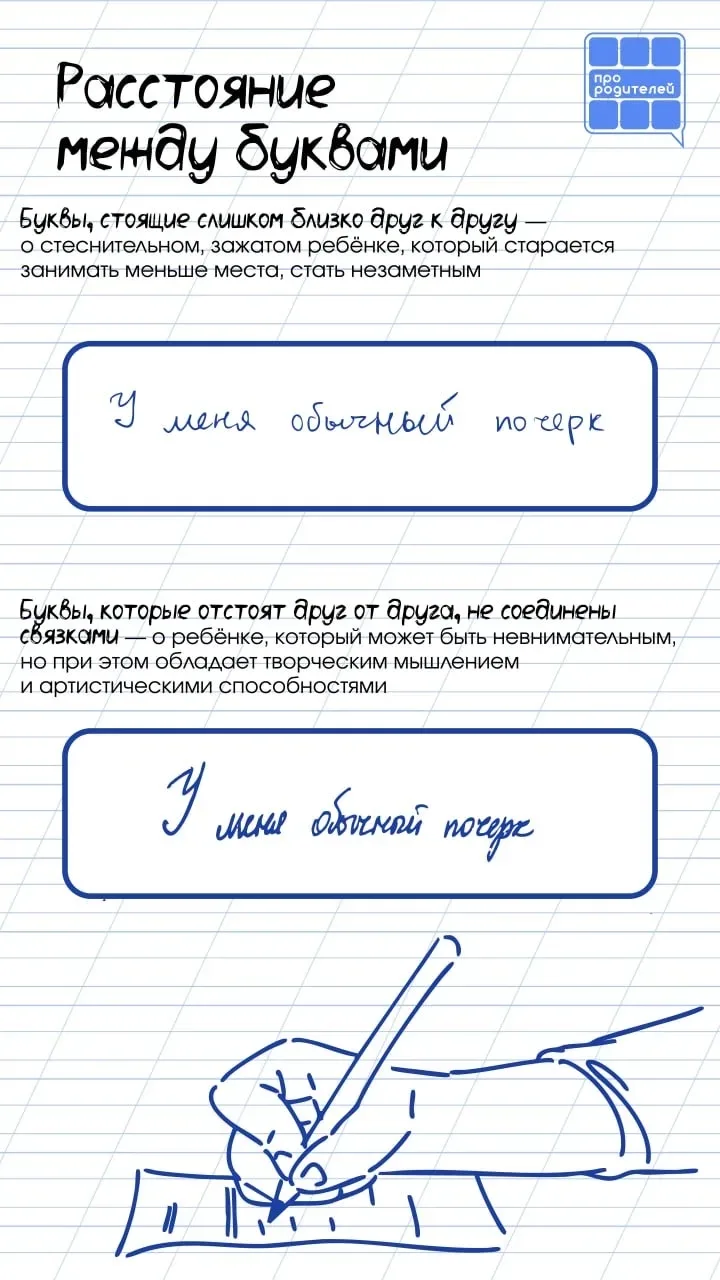 Расстояние
между буквами
про
родителей
Буквы, стоящие слишком близко друг к другу —
о стеснительном, зажатом ребёнке, который старается
занимать меньше места, стать незаметным
У меня обычный почерк
Буквы, которые отстоят друг от друга, не соединены
связками — о ребёнке, который может быть невнимательным,
но при этом обладает творческим мышлением
и артистическими способностями
У меня обычный почерк